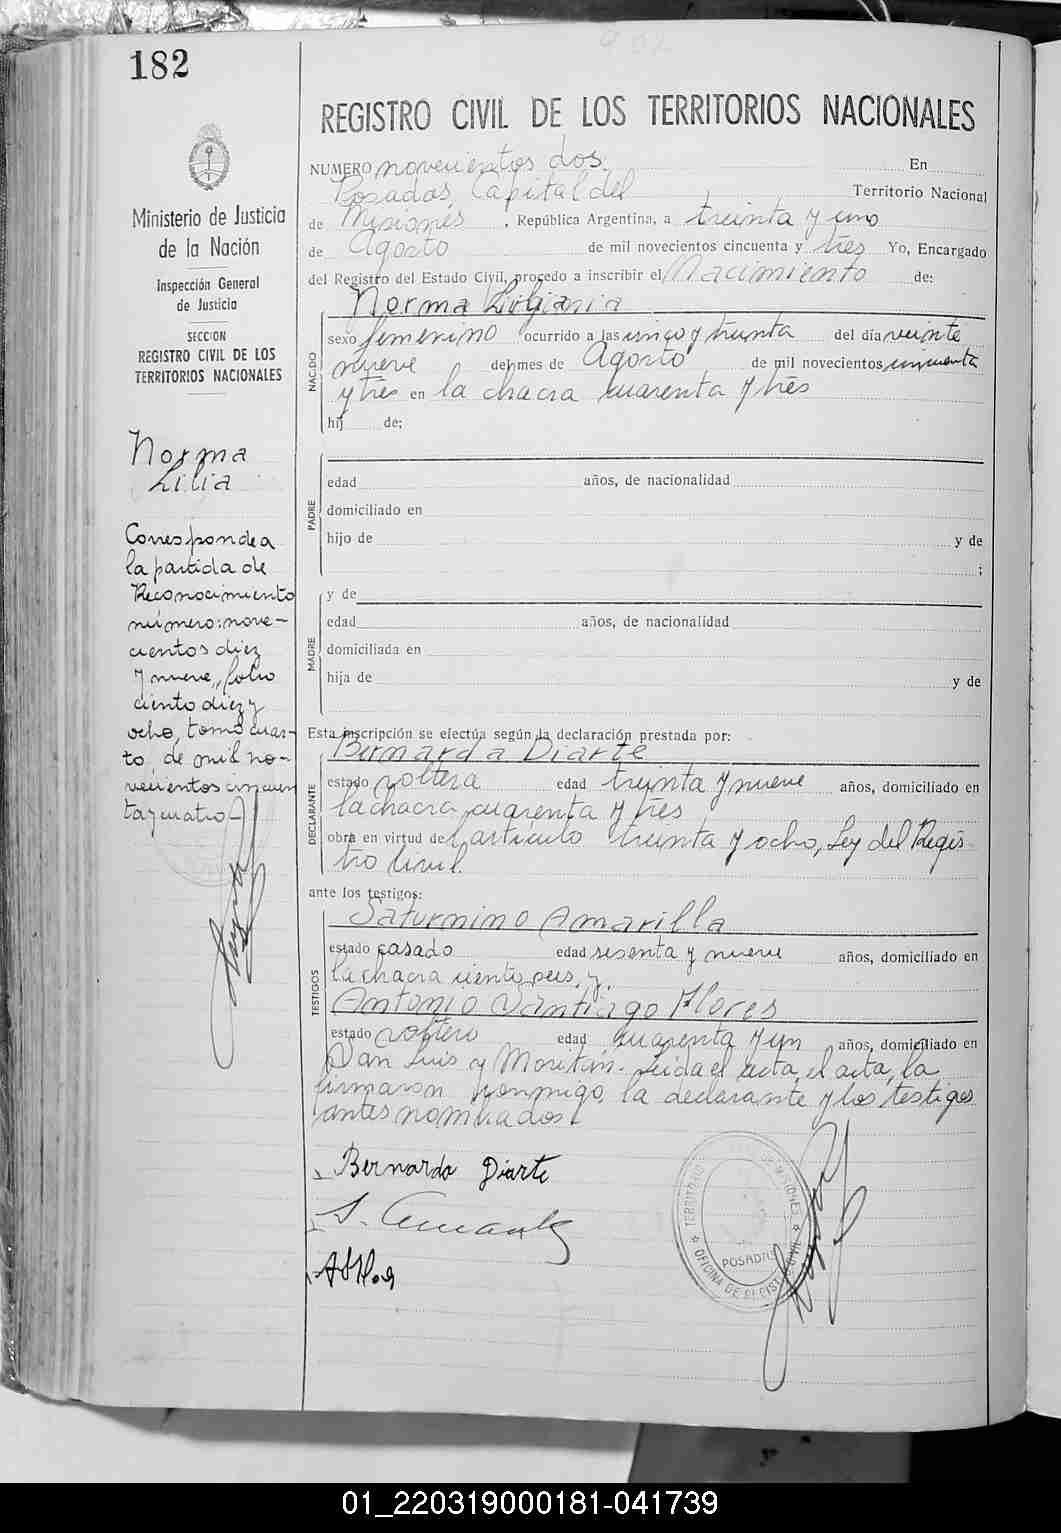 182
REGISTRO CIVIL DE LOS TERRITORIOS NACIONALES
NUMERO novecientos dos. En
Posadas, Capital del Territorio Nacional
de Misiones, República Argentina, a treinta y uno
de Agosto de mil novecientos cincuenta y tres Yo, Encargado
del Registro del Estado Civil, procedo a inscribir el Nacimiento de:
Norma
sexo femenino ocurrido a las cinco y treinta del día veinte
nueve del mes de Agosto de mil novecientos cincuenta
y tres en la chacra cuarenta y tres
hij de:
NACIDO
edad años, de nacionalidad
domiciliado en
hijo de y de
;
PADRE
y de
edad años, de nacionalidad
domiciliada en
hija de y de
MADRE
Esta inscripción se efectúa según la declaración prestada por:
Bernarda Diarte
estado soltera edad treinta y nueve años, domiciliado en
la chacra cuarenta y tres
obra en virtud del artículo treinta y ocho, Ley del Regis-
tro Civil.
DECLARANTE
ante los testigos:
Saturnino Amarilla
estado casado edad sesenta y nueve años, domiciliado en
la chacra ciento seis, y
Antonio Santiago Flores
estado soltero edad cuarenta y un años, domiciliado en
San Luis y Moritán. Leida el acta, el acta, la
firmaron conmigo, la declarante y los testigos
antes nombrados
TESTIGOS
Bernarda Diarte
S. Amarilla
TERRITORIO DE MISIONES
POSADAS
OFICINA DE REGISTRO CIVIL
Ministerio de Justicia
de la Nación
Inspección General
de Justicia
SECCION
REGISTRO CIVIL DE LOS
TERRITORIOS NACIONALES
Norma
Lilia
Corresponde a
la partida de
Reconocimiento
número: nove-
cientos diez
y nueve, folio
ciento diez y
ocho, tomo cuar-
to, de mil no-
vecientos cincuen
ta y cuatro
01_220319000181-041739